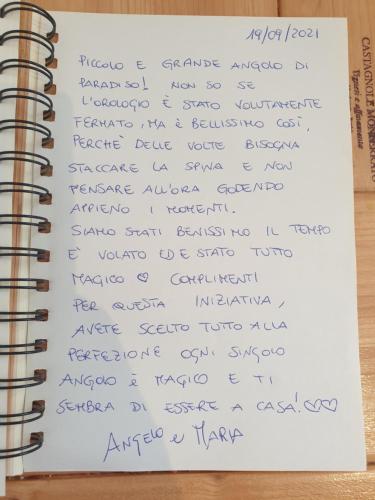 19/09/2021
PICCOLO E GRANDE ANGOLO DI
PARADISO! NON SO SE
L'OROLOGIO È STATO VOLUTAMENTE
FERMATO, MA È BELLISSIMO COSÌ,
PERCHÈ DELLE VOLTE BISOGNA
STACCARE LA SPINA E NON
PENSARE ALL'ORA GODENDO
APPIENO I MOMENTI.
SIAMO STATI BENISSIMO IL TEMPO
E' VOLATO ED E STATO TUTTO
MAGICO ♡ COMPLIMENTI
PER QUESTA INIZIATIVA,
AVETE SCELTO TUTTO ALLA
PERFEZIONE OGNI SINGOLO
ANGOLO È MAGICO E TI
SEMBRA DI ESSERE A CASA! ♡♡
ANGELO e MARIA
CASTAGNOLE MONFERRATO